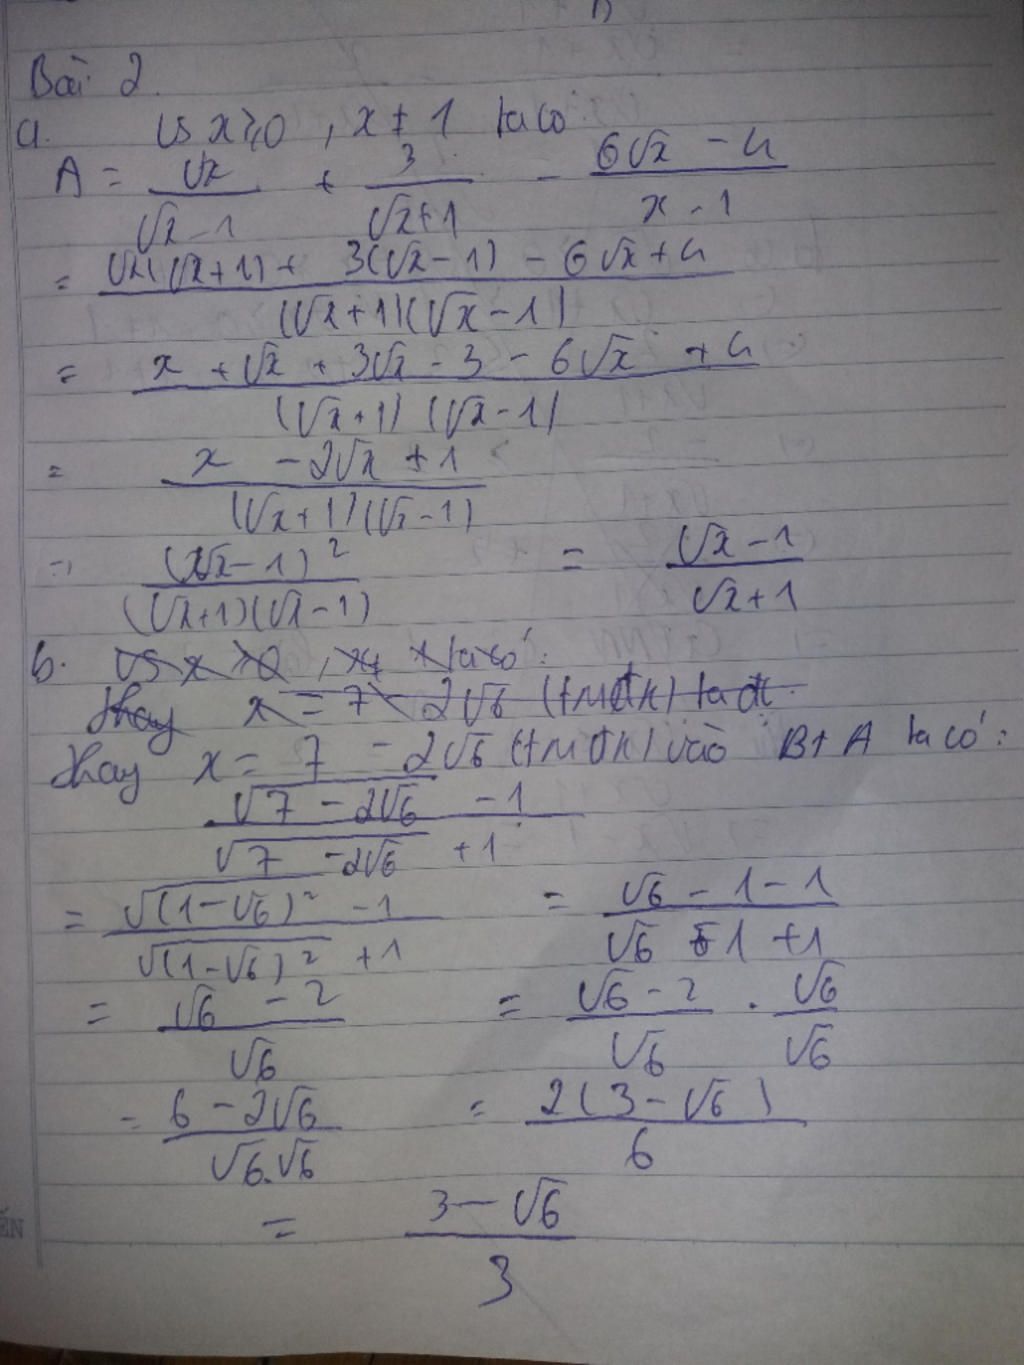 Bài 2.
a. Với x ≥ 0, x ≠ 1 ta có:
A = √x / (√x - 1) + 3 / (√x + 1) - (6√x - 4) / (x - 1)
= (√x(√x + 1) + 3(√x - 1) - 6√x + 4) / ((√x + 1)(√x - 1))
= (x + √x + 3√x - 3 - 6√x + 4) / ((√x + 1)(√x - 1))
= (x - 2√x + 1) / ((√x + 1)(√x - 1))
= (√x - 1)² / ((√x + 1)(√x - 1)) = (√x - 1) / (√x + 1)
b.
thay x = 7 - 2√6 (tmđk) ta đc
Thay x = 7 - 2√6 (tmđk) vào BT A ta có:
(√(7 - 2√6) - 1) / (√(7 - 2√6) + 1)
= (√((1 - √6)²) - 1) / (√((1 - √6)²) + 1) = (√6 - 1 - 1) / (√6 - 1 + 1)
= (√6 - 2) / √6 = (√6 - 2) / √6 . √6 / √6
= (6 - 2√6) / (√6.√6) = 2(3 - √6) / 6
= (3 - √6) / 3